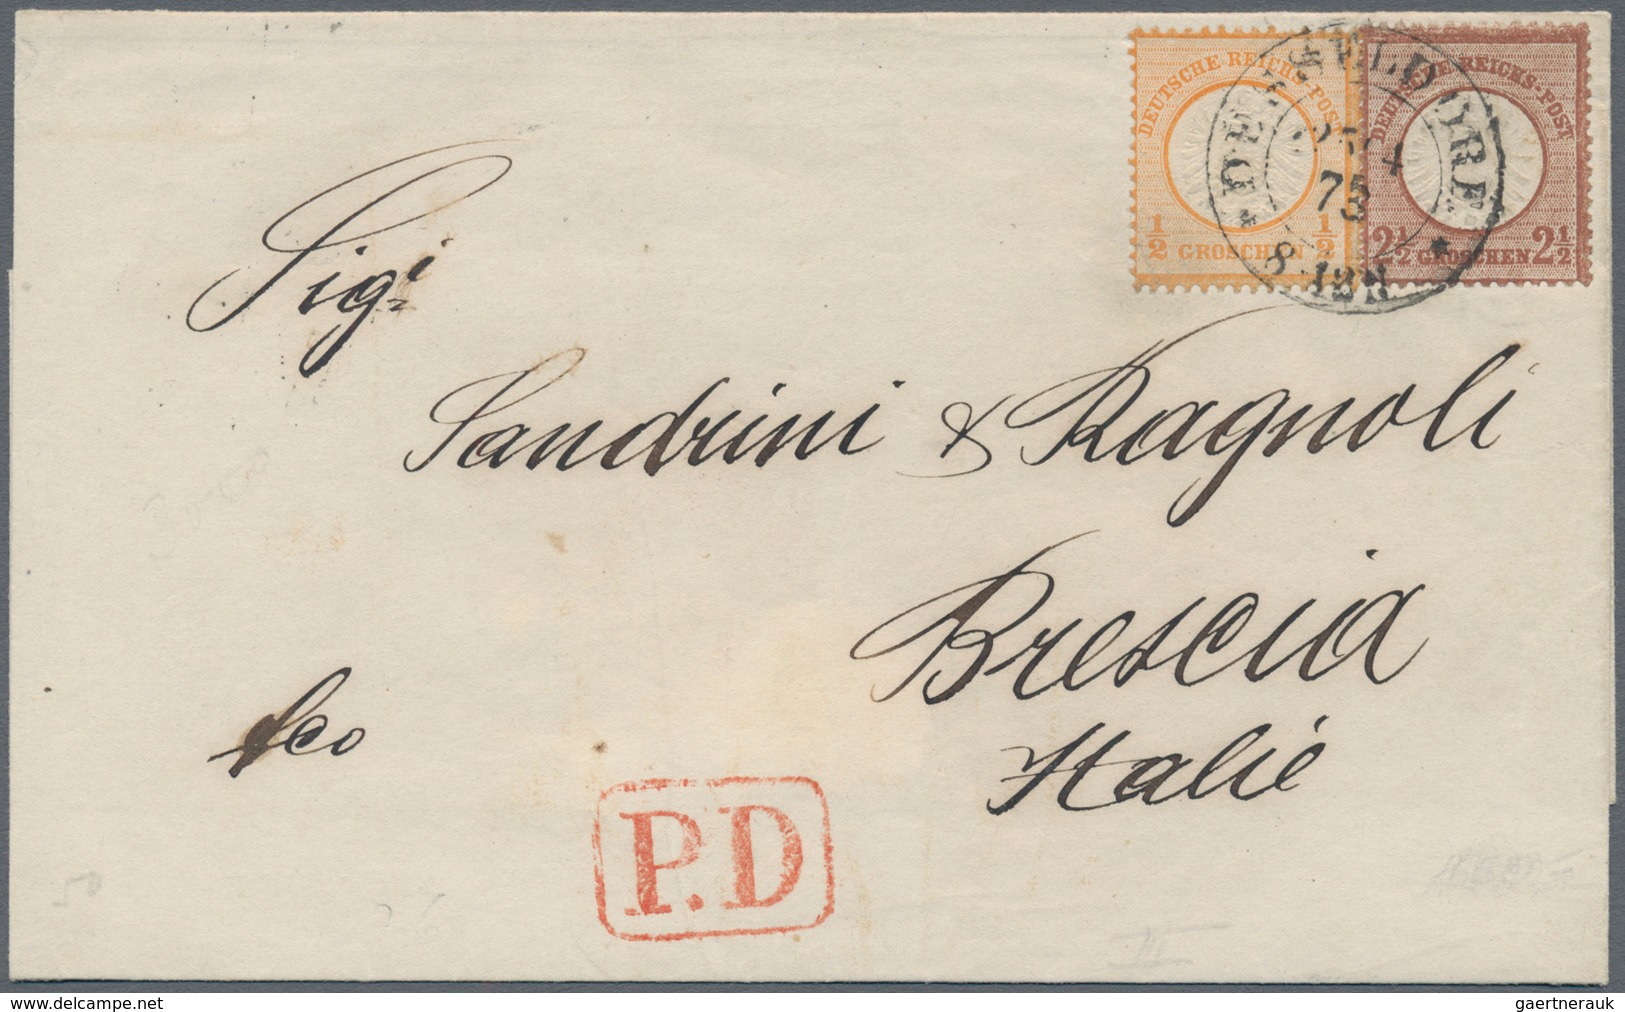 DEUTSCHE REICHS-POST
1/2 GROSCHEN 1/2
DEUTSCHE REICHS-POST
2 1/2 GROSCHEN 2 1/2
75
8-12 N
Sigi
Sandrini & Ragnoli
Brescia
Italie
fco
P.D
gaertnerauk
delcampe.net